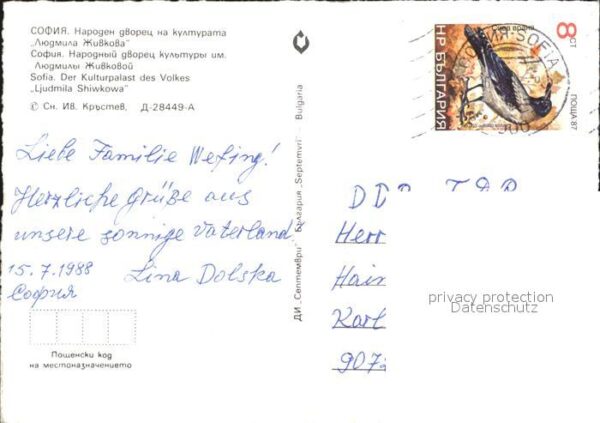 СОФИЯ. Народен дворец на културата
„Людмила Живкова"
София. Народный дворец культуры им.
Людмилы Живковой
Sofia. Der Kulturpalast des Volkes
„Ljudmila Shiwkowa"
© Сн. Ив. Кръстев, Д-28449-А
Liebe Familie Wefing!
Herzliche Grüße aus
unsere sonnige Vaterland.
15.7.1988 Lina Dolska
София
Пощенски код
на местоназначението
ДИ „Септември" България „Septemvri" Bulgaria
8 СТ
НР БЪЛГАРИЯ
ПОЩА 87
СОФИЯ-SOFIA
DDR
Herr
Hain
Karl
907
privacy protection
Datenschutz